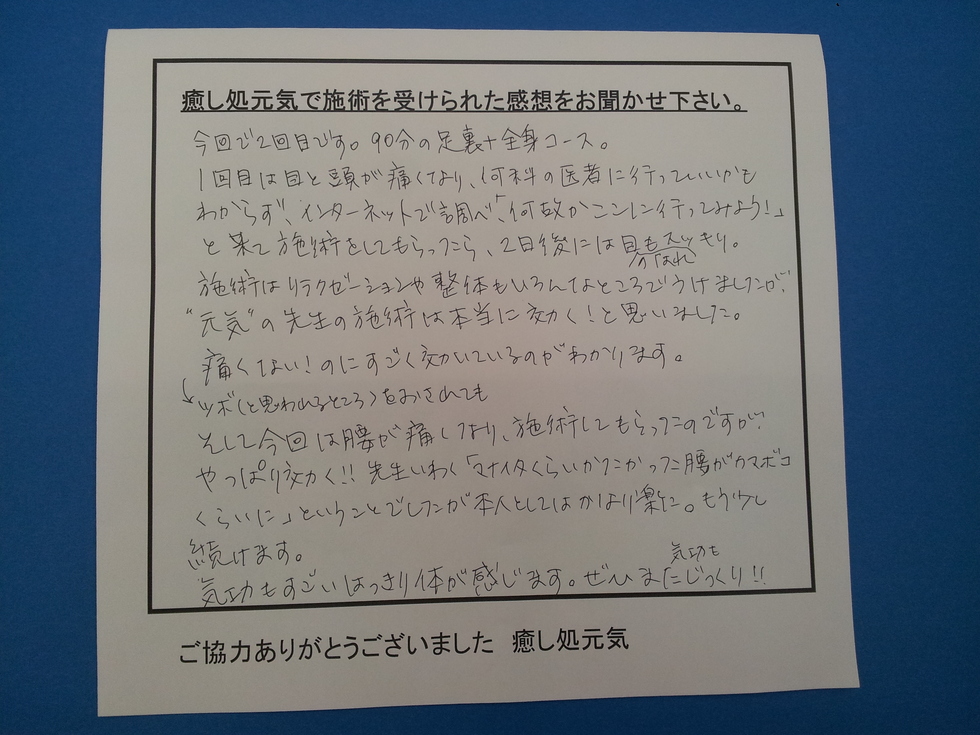 癒し処元気で施術を受けられた感想をお聞かせ下さい。
今回で2回目です。90分の足裏+全身コース。
1回目は目と頭が痛くなり、何科の医者に行っていいかも
わからず、インターネットで調べ、「何故かここに行ってみよう!」
と来て施術をしてもらったら、2日後には目もスッキリ。
のはれ
施術はリラクゼーションや整体もいろんなところでうけましたが、
"元気"の先生の施術は本当に効く!と思いました。
痛くない!のにすごく効いているのがわかります。
ツボ(と思われるところ)をおされても
そして今回は腰が痛くなり、施術してもらったのですが、
やっぱり効く!!先生いわく「マナイタくらいかたかった腰がカマボコ
くらいに」ということでしたが本人としてはかなり楽に。もう少し
続けます。
気功も
気功もすごいはっきり体が感じます。ぜひまたじっくり!!
ご協力ありがとうございました 癒し処元気